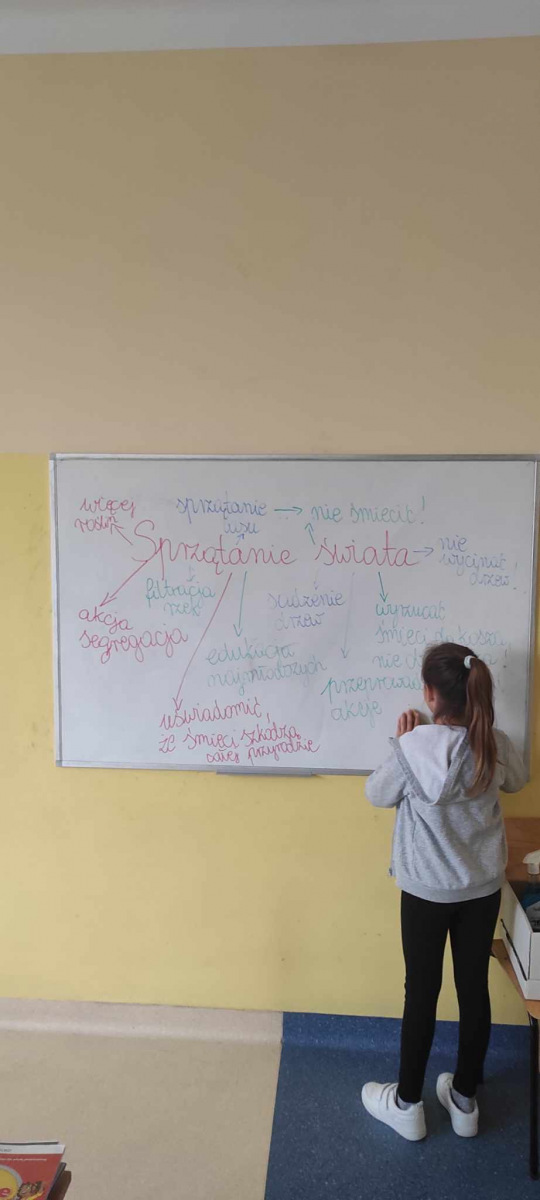 więcej
roślin
sprzątanie
lasu
nie śmiecić!
Sprzątanie świata
nie
wycinać
drzew!
filtracja
rzek
akcja
segregacja
sadzenie
drzew
wyrzucać
śmieci do kosza,
nie
edukacja
najmłodszych
akcje
uświadomić,
że śmieci szkodzą
całej przyrodzie